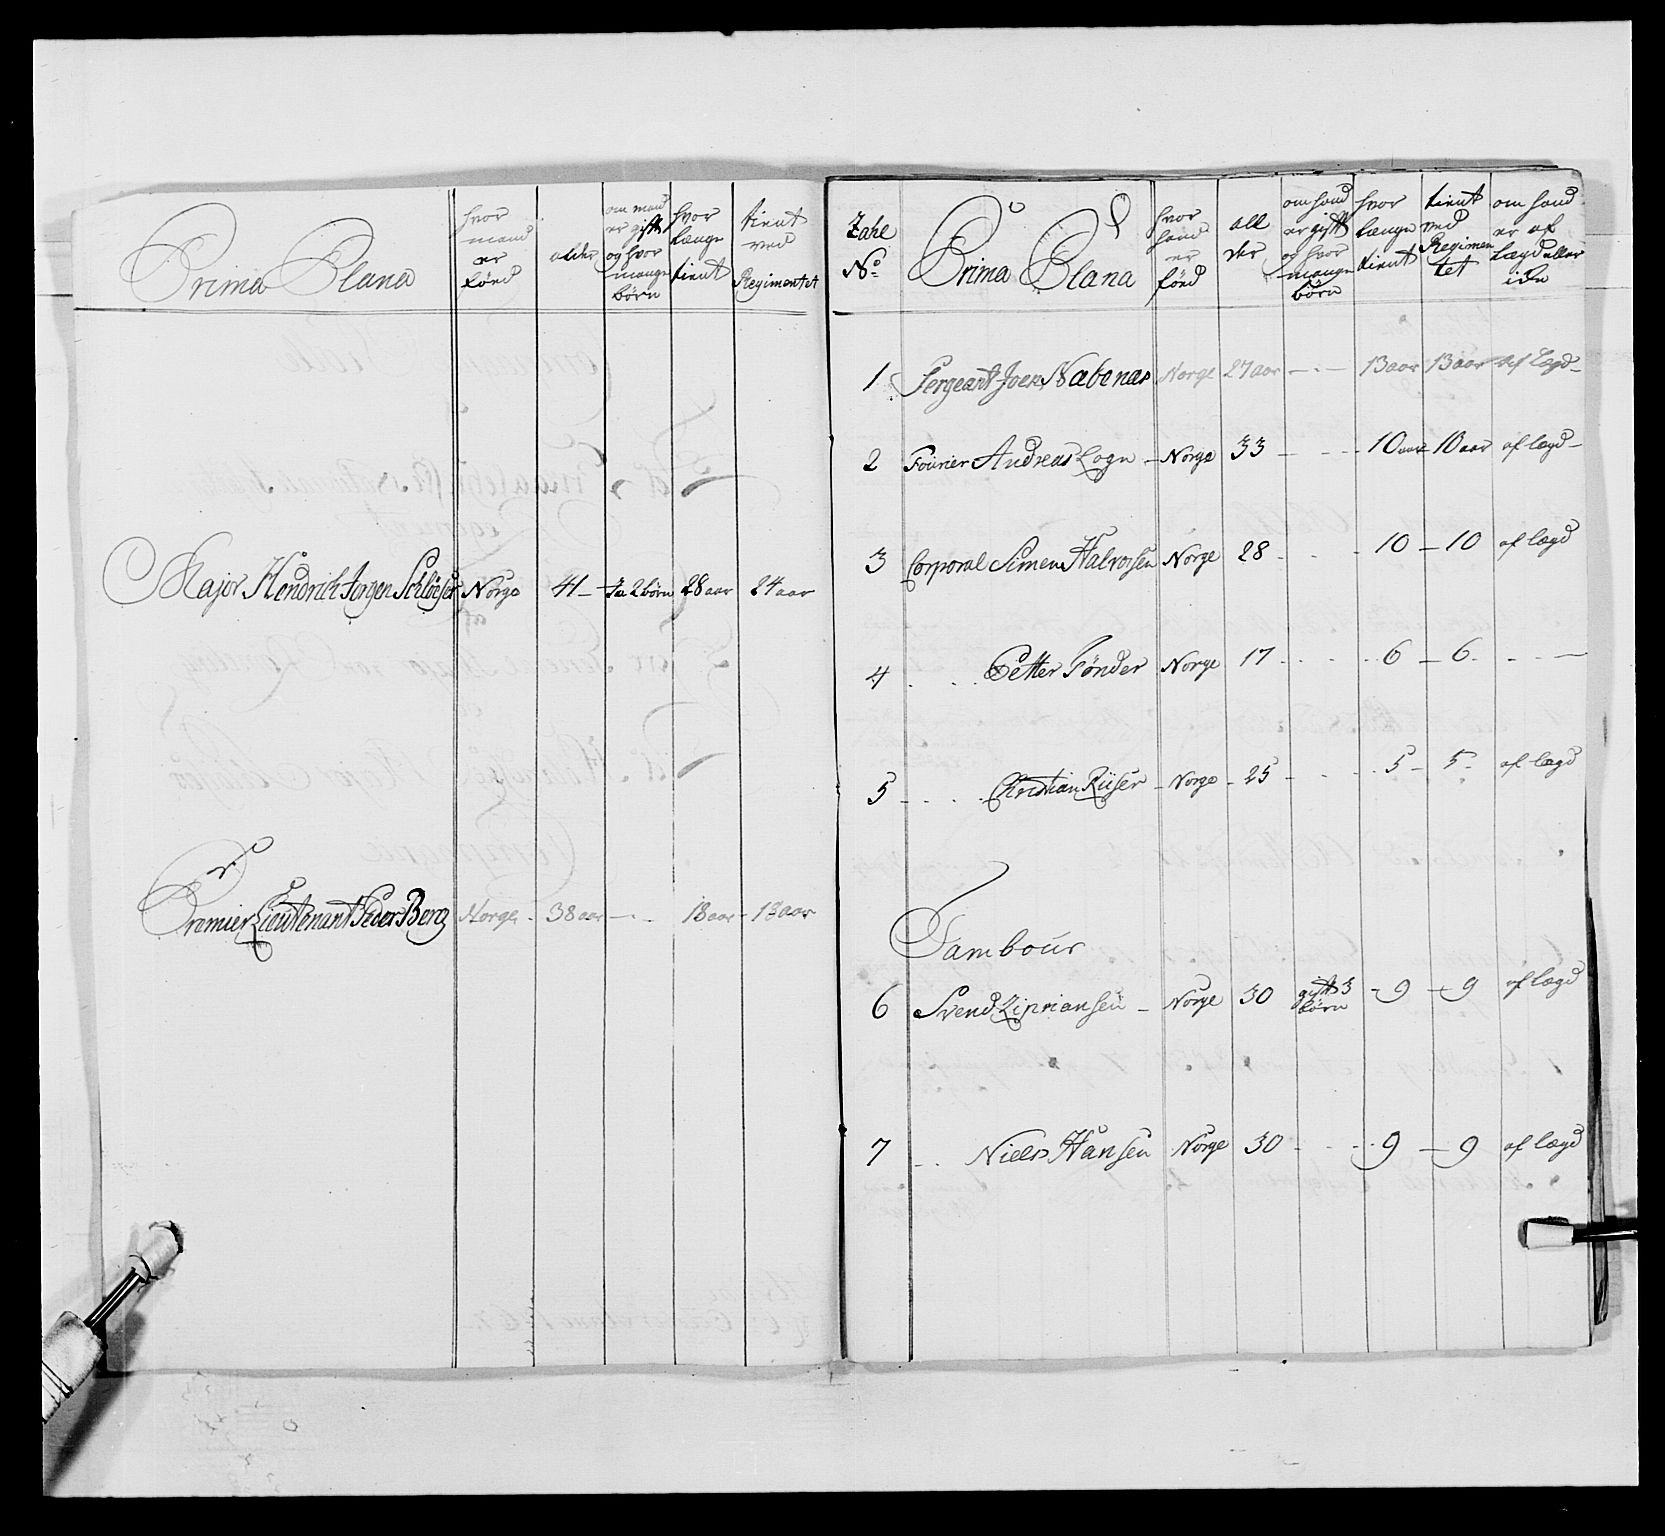 Prima Plana
hvor mand er fönd
alder
om mand er gift og hvor mange börn
hvor længe tient
tient ved Regimentet
Major Hendrich Jørgen Schlöeser Norge 41 – Ja 2 börn 28 aar 24 aar
Premier Lieutenant Peder Berg Norge 38 aar – . – 18 aar – 18 aar
Zahl No
Prima Plana
hvor hand er fönd
all der
om hand er gift og hvor mange börn
hvor længe tient
tient ved Regimentet
om hand er af lægd eller iche
1 Sergeant Joen Nabenæs Norge 27 aar – . – 13 aar 13 aar af Lægd –
2 Fourier Andreas Logn – Norge 33 – – – 10 aar – 10 aar af lægd –
3 Corporal Simen Halvorsen Norge 28 – – – 10 – 10 af lægd
4 . . . Petter Tönder Norge 17 – – – 6 – 6 . – . –
5 – . . . Christian Riiser – Norge – 25 – – – 5 – 5 – af lægd
Tambour
6 Svend Zipriansen – Norge 30 gift 3 börn – 9 – 9 af lægd
7 – . . Niels Hansen Norge 30 – – – 9 – 9 af lægd